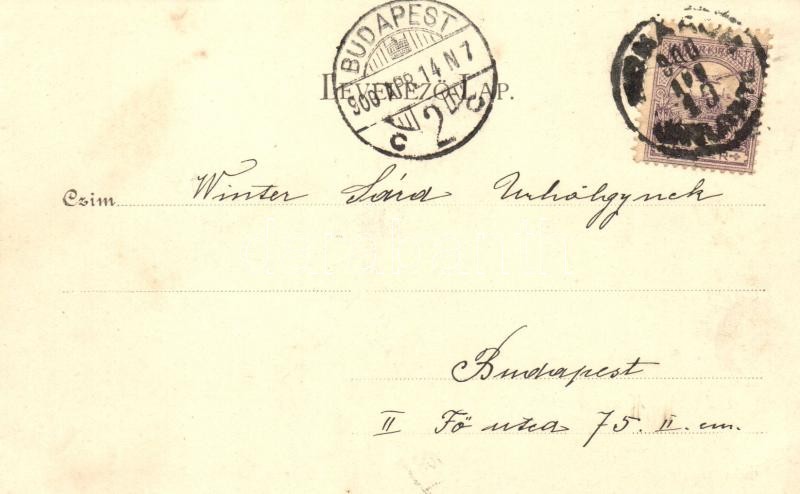 BUDAPEST
900 APR. 14 N 7
2
LEVELEZŐ-LAP.
900
Czim
Winter Sárá Urhölgynek
Budapest
II Fő utca 75. II. em.